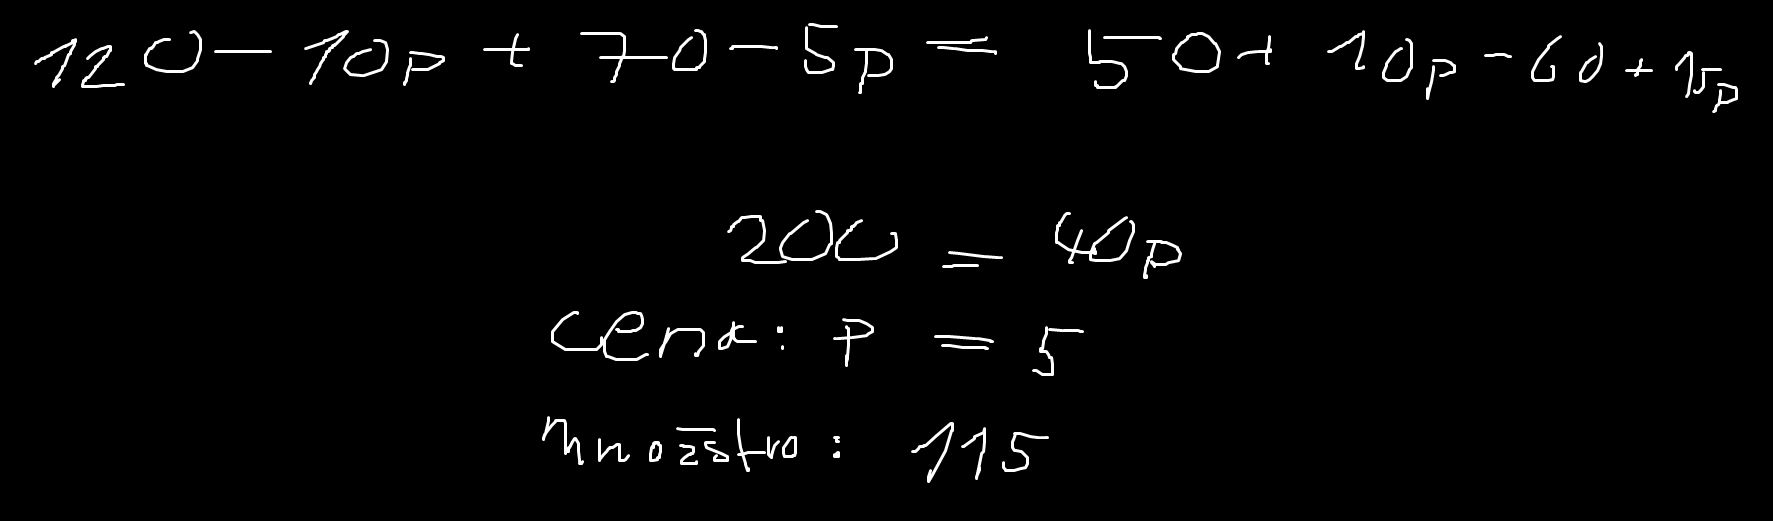 120 - 10p + 70 - 5p = 50 + 10p - 60 + 15p
200 = 40p
cena: P = 5
množstvo: 115